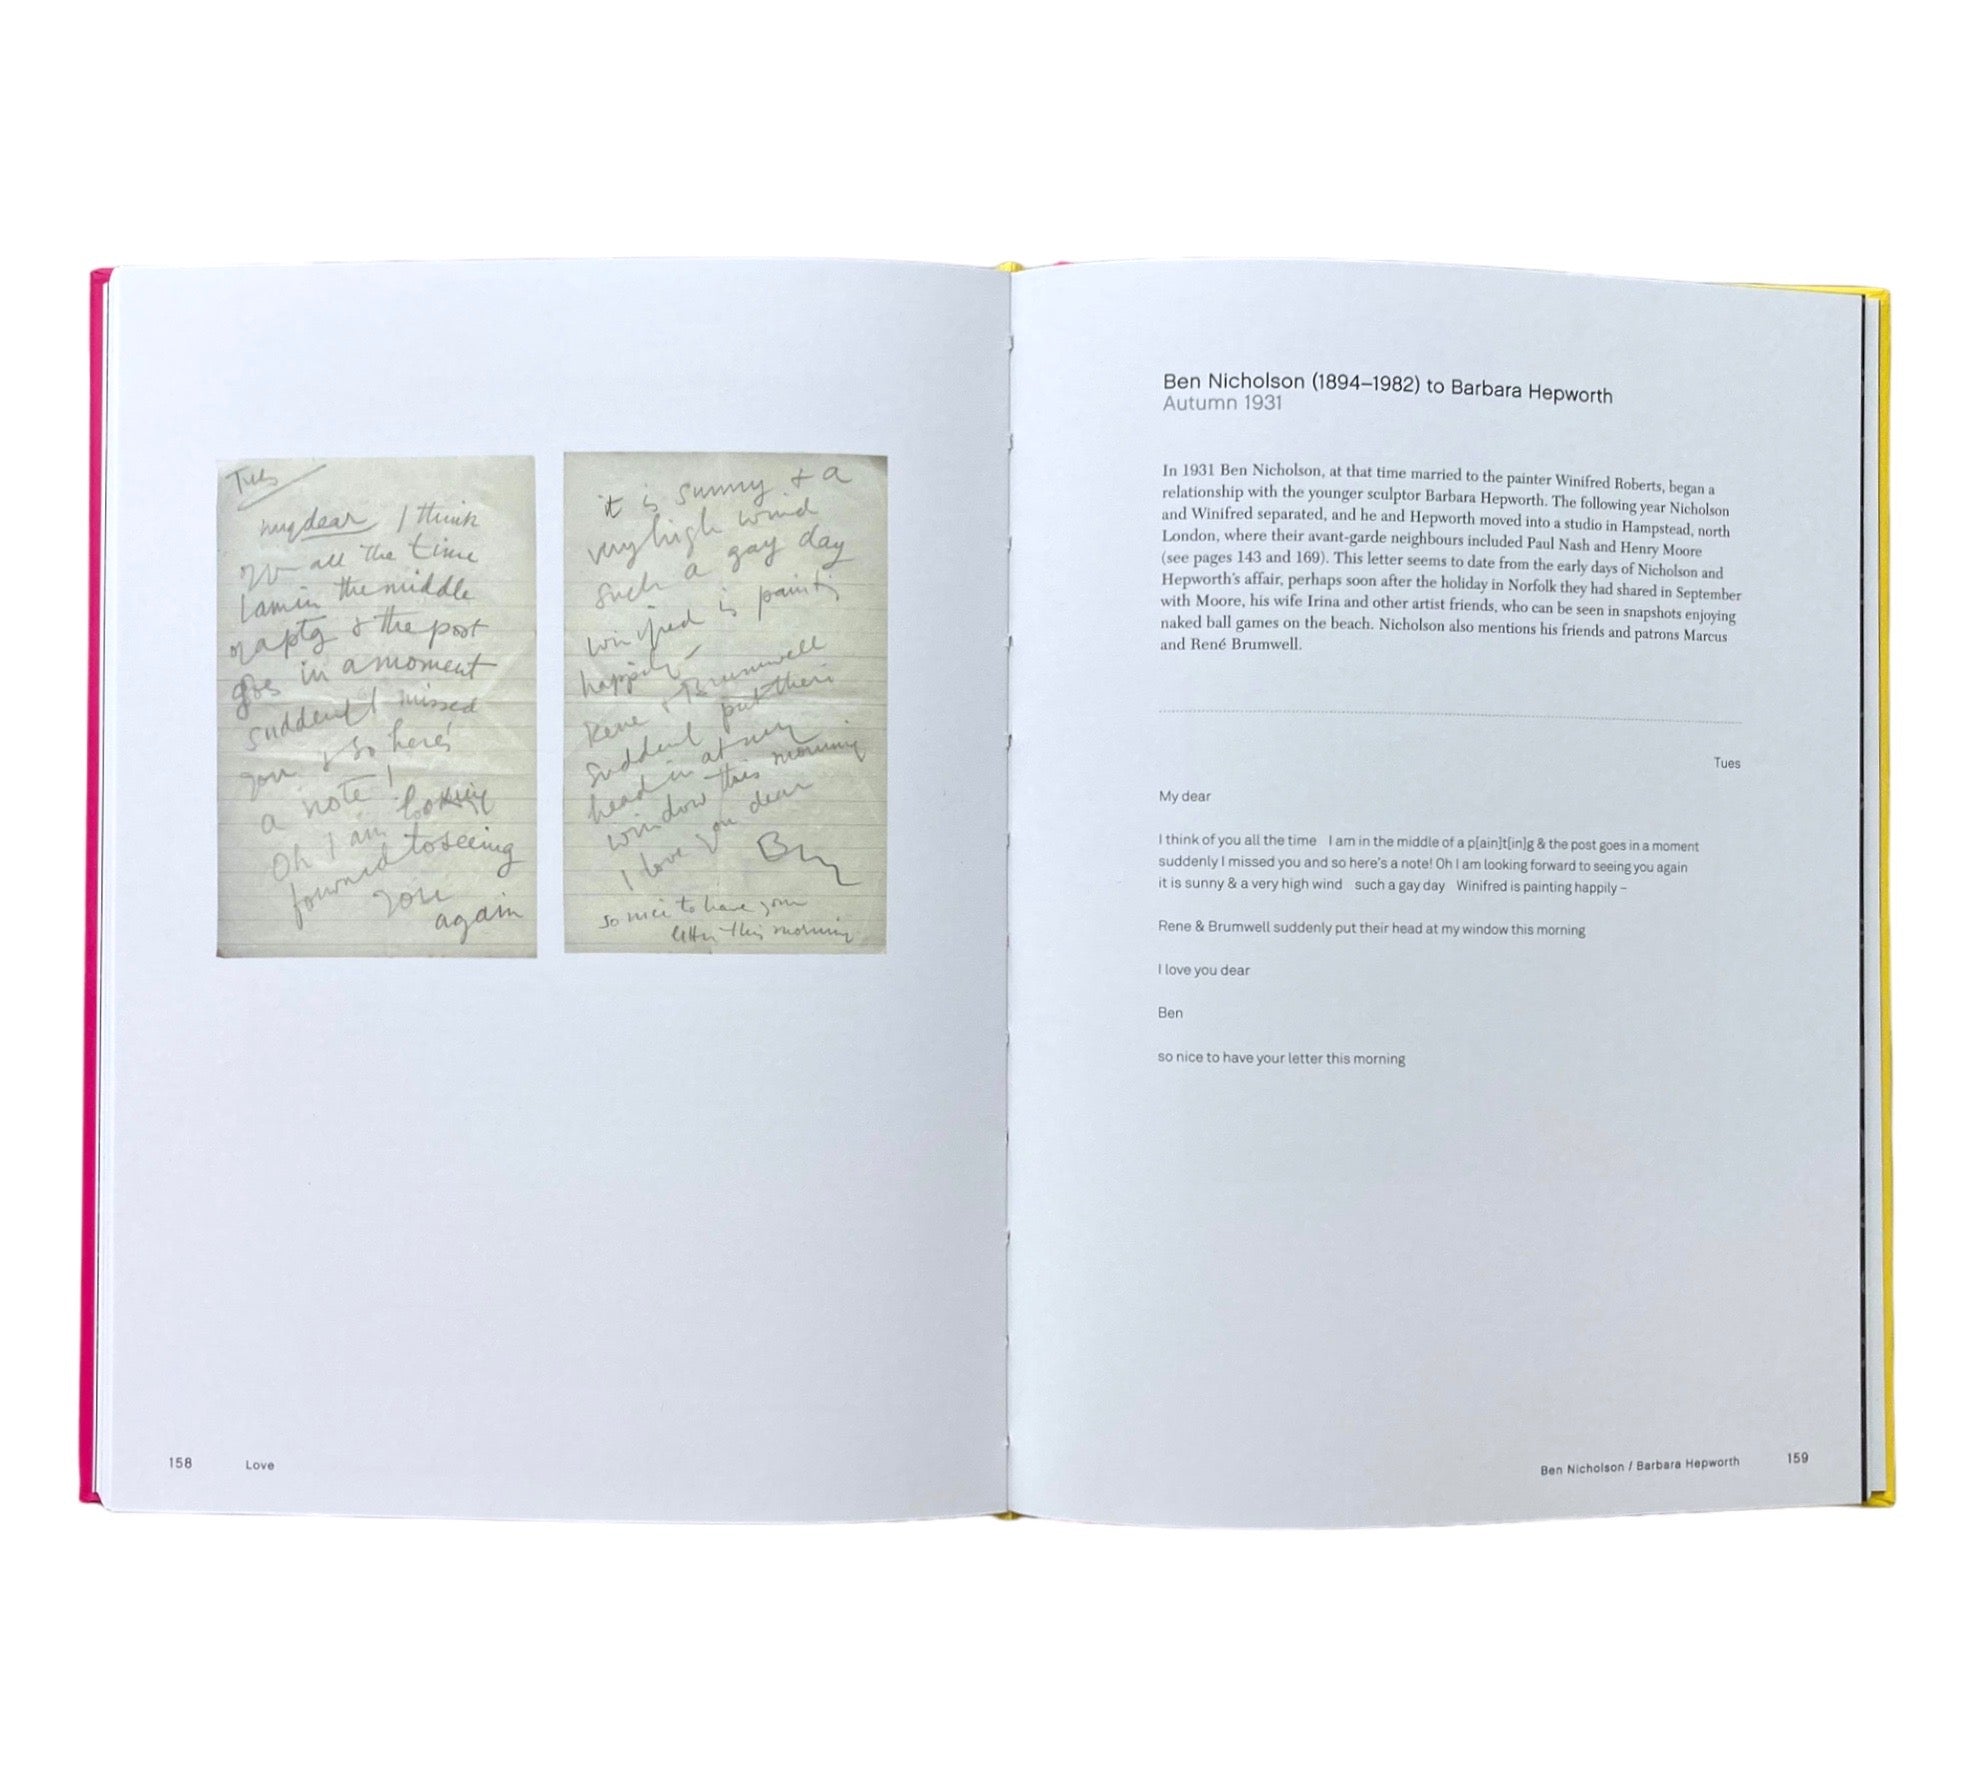 Tues
my dear I think
of you all the time
I am in the middle
of a ptg & the post
goes in a moment
suddenly I missed
you & so here's
a note!
Oh I am looking
forward to seeing
you
again
it is sunny & a
very high wind
such a gay day
Winifred is painting
happily –
Rene & Brumwell
suddenly put their
head in at my
window this morning
I love you dear
Ben
so nice to have your
letter this morning
158
Love
Ben Nicholson (1894–1982) to Barbara Hepworth
Autumn 1931
In 1931 Ben Nicholson, at that time married to the painter Winifred Roberts, began a
relationship with the younger sculptor Barbara Hepworth. The following year Nicholson
and Winifred separated, and he and Hepworth moved into a studio in Hampstead, north
London, where their avant-garde neighbours included Paul Nash and Henry Moore
(see pages 143 and 169). This letter seems to date from the early days of Nicholson and
Hepworth's affair, perhaps soon after the holiday in Norfolk they had shared in September
with Moore, his wife Irina and other artist friends, who can be seen in snapshots enjoying
naked ball games on the beach. Nicholson also mentions his friends and patrons Marcus
and René Brumwell.
Tues
My dear
I think of you all the time I am in the middle of a p[ain]t[in]g & the post goes in a moment
suddenly I missed you and so here's a note! Oh I am looking forward to seeing you again
it is sunny & a very high wind such a gay day Winifred is painting happily –
Rene & Brumwell suddenly put their head at my window this morning
I love you dear
Ben
so nice to have your letter this morning
Ben Nicholson / Barbara Hepworth
159